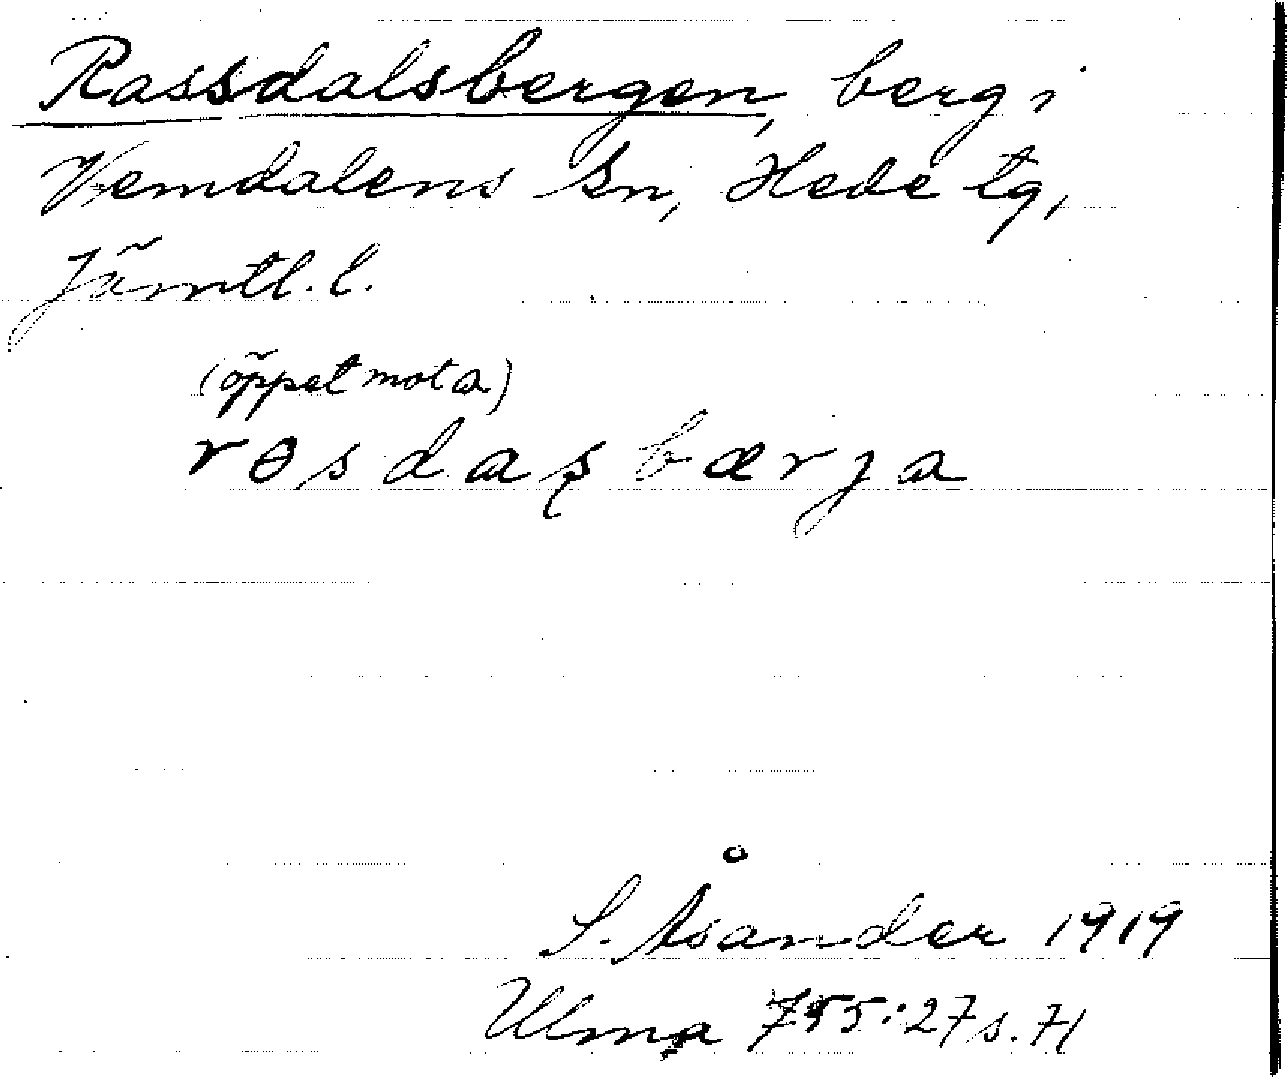 Rassdalsbergen, berg i
Vemdalens sn, Hede tg,
Jämtl. l.
(öppet mot a)
rɵsdaʂbærja
S. Åsander 1919
Ulma 755:27 s. 71